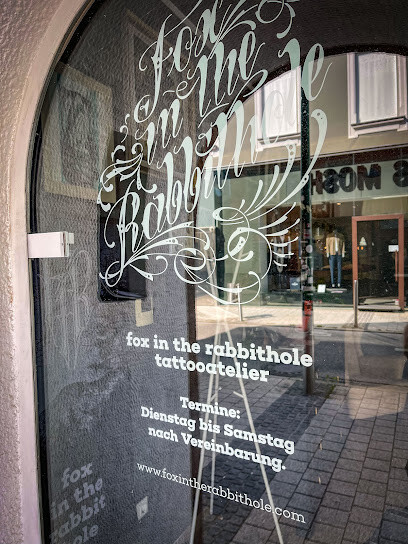 Fox
in the
Rabbithole
fox in the rabbithole
tattooatelier
Termine:
Dienstag bis Samstag
nach Vereinbarung.
www.foxintherabbithole.com
fox
in the
rabbit
hole
S MOSH